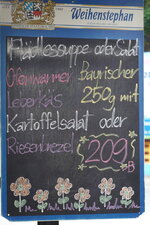 Weihenstephan
Flädlessuppe oder Salat
Ofenwarmer Bayrischer
Leberkäs 250g mit
Kartoffelsalat oder
Riesenbrezel 209